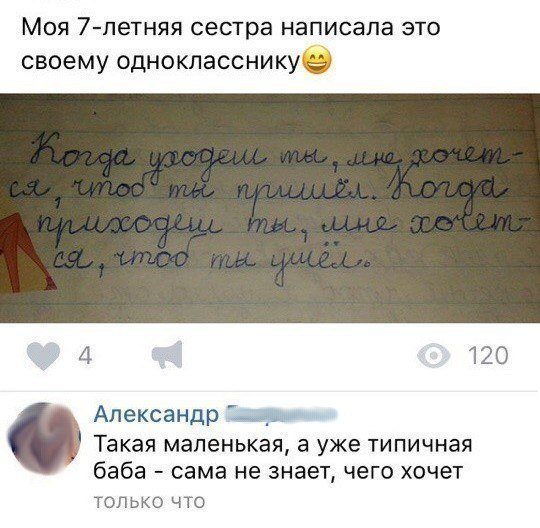 Моя 7-летняя сестра написала это
своему однокласснику😄
Когда уходеш ты, мне хочет-
ся, чтоб ты пришёл. Когда
приходеш ты, мне хочет-
ся, чтоб ты ушёл.
4
120
Александр
Такая маленькая, а уже типичная
баба - сама не знает, чего хочет
только что